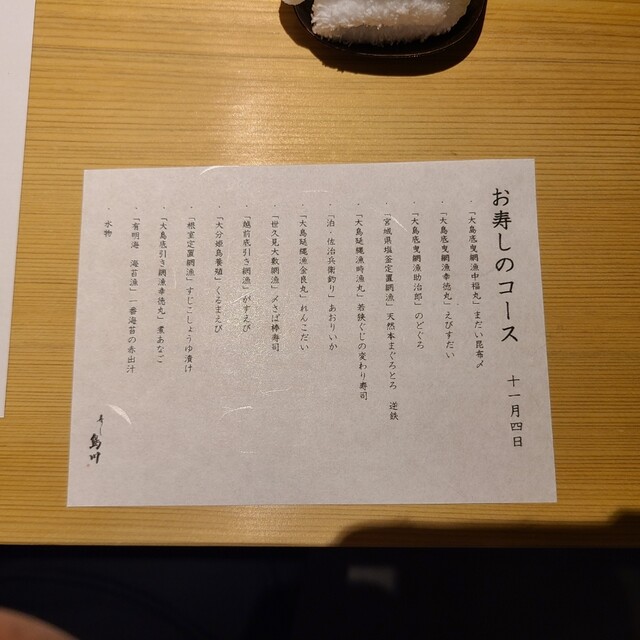 お寿しのコース 十一月四日
・「大島底曳網漁中福丸」まだい昆布〆
・「大島底曳網漁幸徳丸」えびすだい
・「大島底曳網漁助治郎」のどぐろ
・「宮城県塩釜定置網漁」天然本まぐろとろ 逆鉄
・「大島延縄漁時漁丸」若狭ぐじの変わり寿司
・「泊・佐治兵衛釣り」あおりいか
・「大島延縄漁金良丸」れんこだい
・「世久見大敷網漁」〆さば棒寿司
・「越前底引き網漁」がすえび
・「大分姫島養殖」くるまえび
・「根室定置網漁」すじこしょうゆ漬け
・「大島底引き網漁幸徳丸」煮あなご
・「有明海 海苔漁」一番海苔の赤出汁
・水物